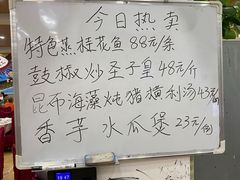 今日热卖
特色蒸桂花鱼88元/条
鼓椒炒圣子皇48元/斤
昆布海藻炖猪横利汤43元/
香芋水瓜煲23元/例